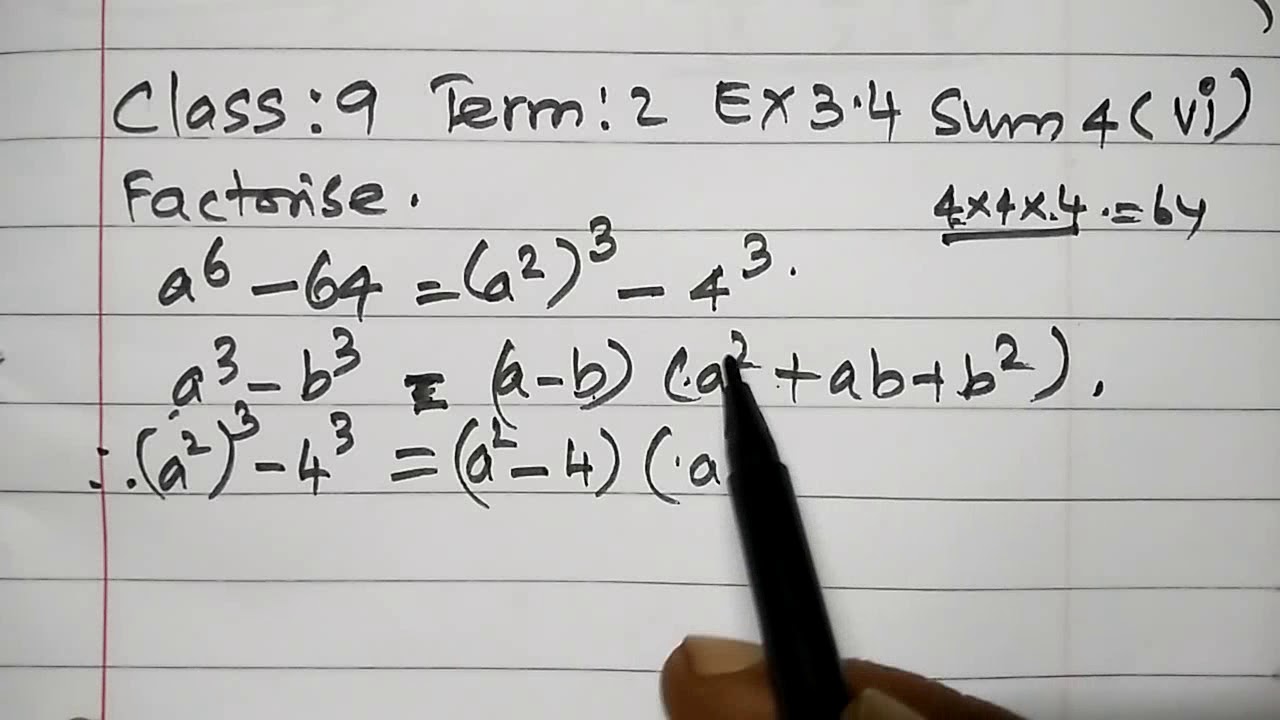 Class: 9 Term: 2 Ex 3.4 Sum 4 (vi)
Factorise.
4×4×4.=64
a⁶ - 64 = (a²)³ - 4³.
a³ - b³ = (a-b) (a² + ab + b²).
∴ (a²)³ - 4³ = (a² - 4) (a